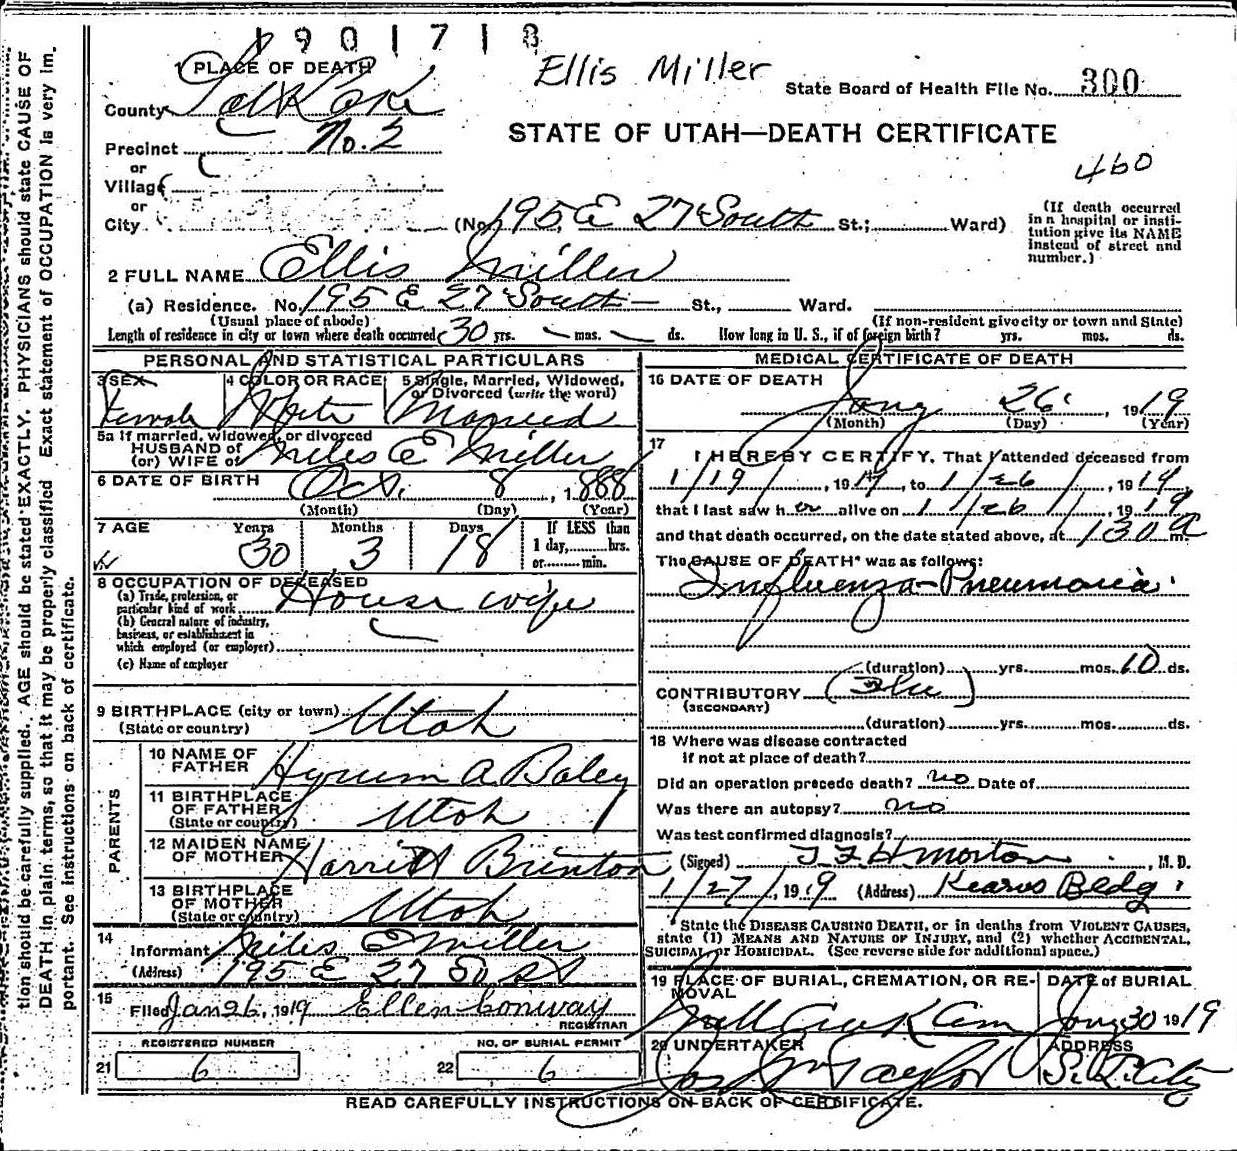 1901718
Ellis Miller
State Board of Health File No. 300
STATE OF UTAH—DEATH CERTIFICATE
460
1 PLACE OF DEATH
County Salt Lake
Precinct No. 2
or
Village
or
City
(No. 195 E 27 South St.; Ward)
(If death occurred in a hospital or institution give its NAME instead of street and number.)
2 FULL NAME Ellis Miller
(a) Residence. No. 195 E 27 South St., Ward.
(Usual place of abode) (If non-resident give city or town and State)
Length of residence in city or town where death occurred 30 yrs. mos. ds. How long in U. S., if of foreign birth? yrs. mos. ds.
PERSONAL AND STATISTICAL PARTICULARS
3 SEX Female
4 COLOR OR RACE White
5 Single, Married, Widowed, or Divorced (write the word) Married
5a If married, widowed, or divorced
HUSBAND of
(or) WIFE of Miles E Miller
6 DATE OF BIRTH Oct. 8, 1888
(Month) (Day) (Year)
7 AGE Years 30 Months 3 Days 18
If LESS than 1 day, hrs. or min.
8 OCCUPATION OF DECEASED
(a) Trade, profession, or particular kind of work House wife
(b) General nature of industry, business, or establishment in which employed (or employer)
(c) Name of employer
9 BIRTHPLACE (city or town) Utah
(State or country)
PARENTS
10 NAME OF FATHER Hyrum A Baley
11 BIRTHPLACE OF FATHER Utah
(State or country)
12 MAIDEN NAME OF MOTHER Harriett Brinton
13 BIRTHPLACE OF MOTHER Utah
(State or country)
14 Informant Miles E Miller
(Address) 195 E 27 So St
15 Filed Jan 26, 1919 Ellen Conway
REGISTRAR
REGISTERED NUMBER
21 6
NO. OF BURIAL PERMIT
22 6
MEDICAL CERTIFICATE OF DEATH
16 DATE OF DEATH
Jany 26, 1919
(Month) (Day) (Year)
17
I HEREBY CERTIFY, That I attended deceased from
1/19/, 1919, to 1/26/, 1919
that I last saw h er alive on 1/26/, 1919
and that death occurred, on the date stated above, at 130 a m.
The CAUSE OF DEATH* was as follows:
Influenza-Pneumonia
(duration) yrs. mos. 10 ds.
CONTRIBUTORY (Flu)
(SECONDARY)
(duration) yrs. mos. ds.
18 Where was disease contracted
if not at place of death?
Did an operation precede death? no Date of
Was there an autopsy? no
Was test confirmed diagnosis?
(Signed) Morton, M. D.
1/27/, 1919 (Address) Kearns Bldg.
*State the DISEASE CAUSING DEATH, or in deaths from VIOLENT CAUSES,
state (1) MEANS AND NATURE OF INJURY, and (2) whether ACCIDENTAL,
SUICIDAL or HOMICIDAL. (See reverse side for additional space.)
19 PLACE OF BURIAL, CREMATION, OR REMOVAL
Mill Creek Cem
DATE of BURIAL
Jany 30 1919
20 UNDERTAKER
Jos Wm Taylor
ADDRESS
S. L. City
READ CAREFULLY INSTRUCTIONS ON BACK OF CERTIFICATE.
tion should be carefully supplied. AGE should be stated EXACTLY. PHYSICIANS should state CAUSE OF
DEATH in plain terms, so that it may be properly classified Exact statement of OCCUPATION is very im.
portant. See instructions on back of certificate.